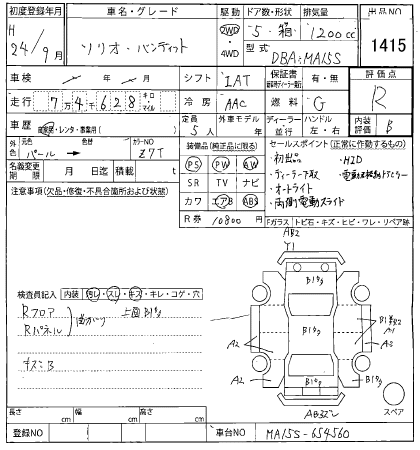 初度登録年月 車名・グレード 駆動 ドア数・形状 排気量 出品NO
H 24/9月 ソリオ・バンディット 2WD・4WD 5・箱 1200cc 1415
型式 DBA-MA15S
車検 / 月 シフト IAT 保証書 有・無 評価点
走行 7万4千628 キロ・マイル 冷房 AAC 燃料 G R
車歴 自家用・レンタ・事業用( ) 定員 5人 外車モデル ディーラー 並行 ハンドル 左・右 内装評価 B
外色 元色 パール → 色替 カラーNO Z7T
装備品(純正品に限る) セールスポイント(正常に作動するもの)
名義変更期限 月 日迄 積載 t
PS PW AW
SR TV ナビ
カワ エアB ABS
R券 10800円
・初出品 ・HID
・ディーラー下取
・オートライト
・両側電動スライド
注意事項(欠品・修復・不具合箇所および状態)
Fガラス トビ石・キズ・ヒビ・ワレ・リペア跡
検査員記入 内装 汚レ・スレ・キズ・キレ・コゲ・穴
Rフロア
Rパネル
曲がり
上図B1多
キズミB
AB2
Y1
B1多
A2
A3
A2
B1多
スペア
長さ cm 幅 cm 高さ cm
登録NO 車台NO MA15S-654560